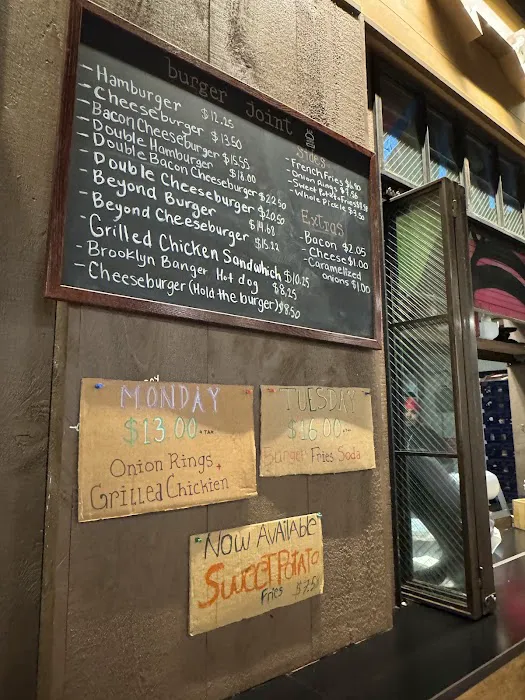 burger joint
- Hamburger $12.25
- Cheeseburger $13.50
- Bacon Cheeseburger $15.55
- Double Hamburger $18.00
- Double Bacon Cheeseburger $22.50
- Double Cheeseburger $20.50
- Beyond Burger $14.68
- Beyond Cheeseburger $15.22
- Grilled Chicken Sandwhich $10.25
- Brooklyn Banger Hot dog $8.25
- Cheeseburger (Hold the burger) $8.50
Sides
- French Fries
- Onion Rings
- Sweet Potato Fries
- Whole Pickle
Extras
- Bacon $2.05
- Cheese $1.00
- Caramelized
onions $1.00
MONDAY
$13.00 + TAX
Onion Rings +
Grilled Chickien
TUESDAY
$16.00
Burger Fries Soda
NOW AVAilABle
SweeT PoTATO
Fries $7.50